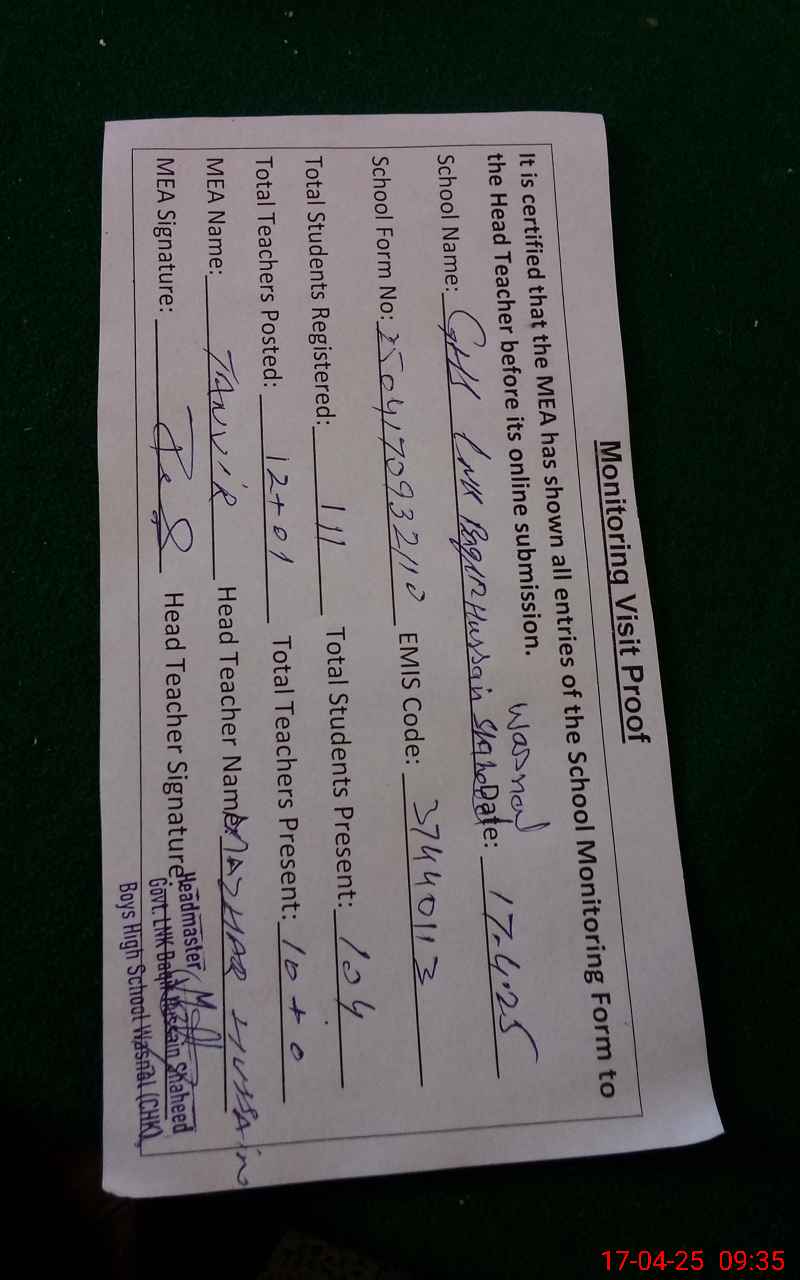 Monitoring Visit Proof
It is certified that the MEA has shown all entries of the School Monitoring Form to
the Head Teacher before its online submission.
Wasnal
School Name: GHS LNK Baqir Hussain Shaheed Date: 17-4-25
School Form No: 2504170932110 EMIS Code: 37440113
Total Students Registered: 111 Total Students Present: 104
Total Teachers Posted: 12+01 Total Teachers Present: 10+0
MEA Name: TANVIR Head Teacher Name: MAZHAR HUSSAIN
MEA Signature: Head Teacher Signature:
Headmaster
Govt. LNK Baqir Hussain Shaheed
Boys High School Wasnal (CHK)
17-04-25 09:35